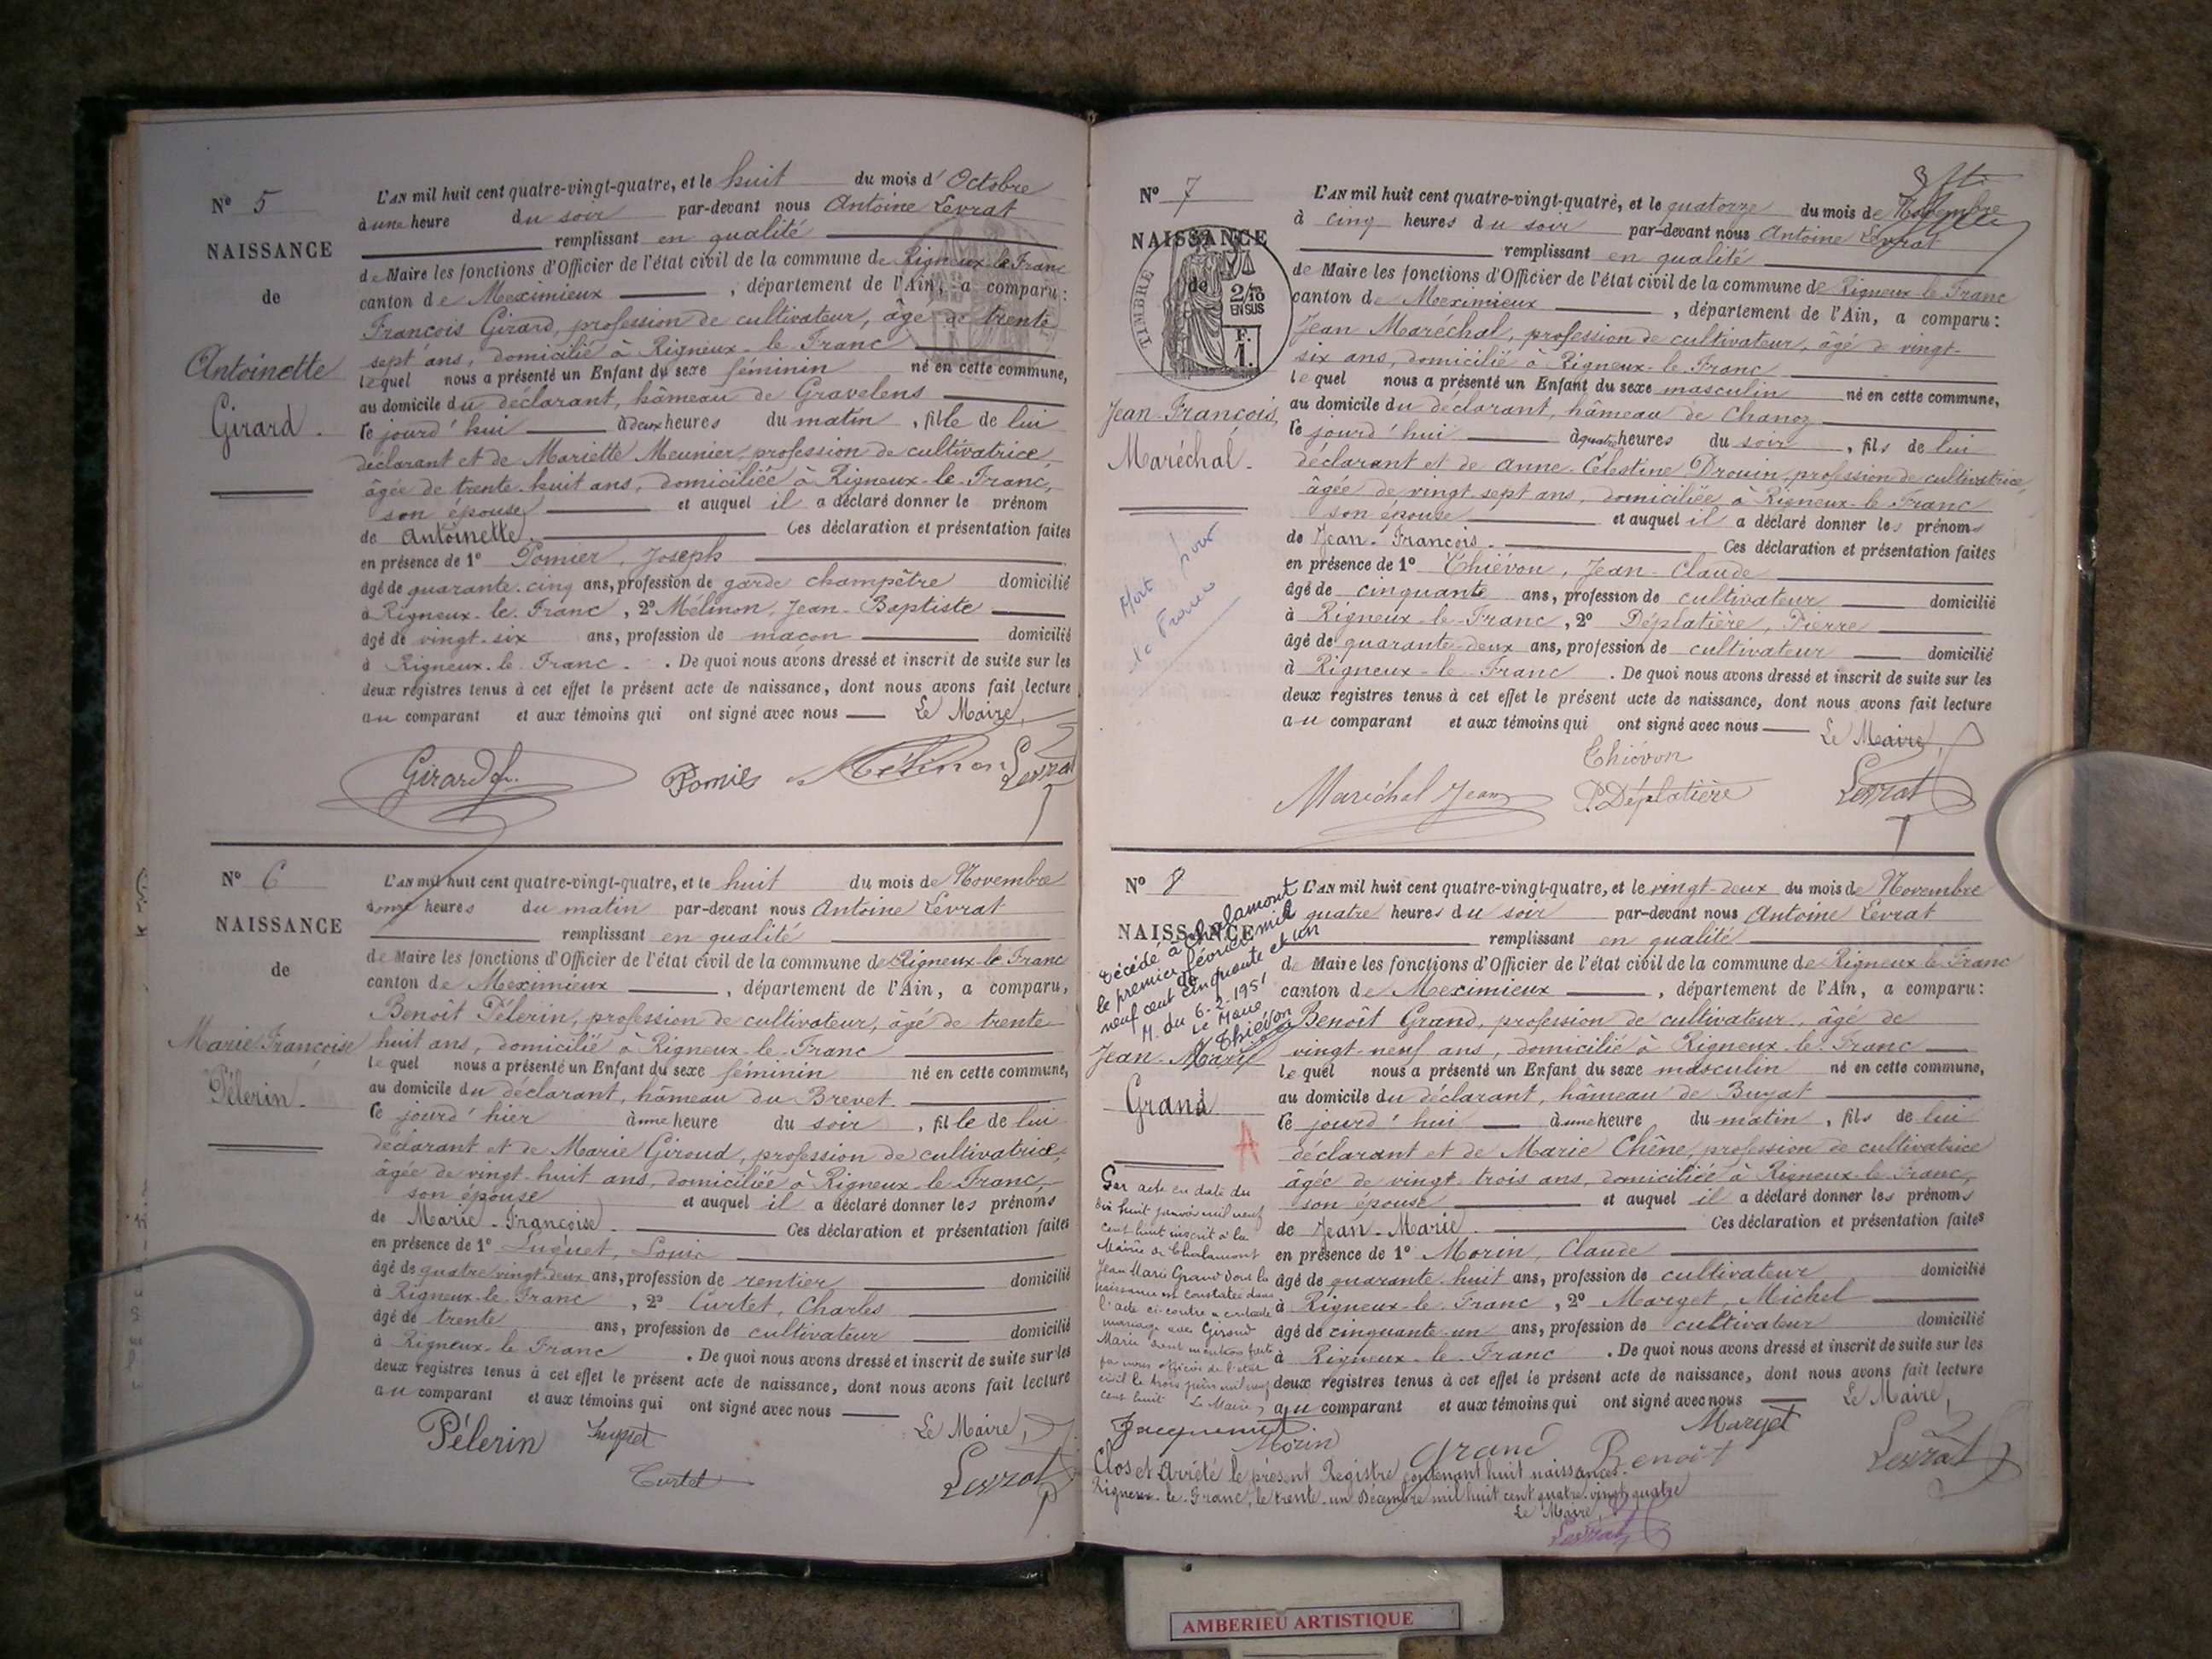 N° 5
NAISSANCE
de
Antoinette
Girard.
L'AN mil huit cent quatre-vingt-quatre, et le huit du mois d'Octobre
à une heure du soir par-devant nous Antoine Levrat
remplissant en qualité
de Maire les fonctions d'Officier de l'état civil de la commune de Rigneux-le-Franc
canton de Meximieux, département de l'Ain, a comparu:
François Girard, profession de cultivateur, âgé de trente
sept ans, domicilié à Rigneux-le-Franc
lequel nous a présenté un Enfant du sexe féminin né en cette commune,
au domicile du déclarant, hâmeau de Gravelens
ce jourd'hui à deux heures du matin, fille de lui
déclarant et de Mariette Meunier, profession de cultivatrice,
âgée de trente-huit ans, domiciliée à Rigneux-le-Franc,
son épouse et auquel il a déclaré donner le prénom
de Antoinette. Ces déclaration et présentation faites
en présence de 1° Pomier, Joseph
âgé de quarante-cinq ans, profession de garde champêtre domicilié
à Rigneux-le-Franc, 2° Mélinon, Jean-Baptiste
âgé de vingt-six ans, profession de maçon domicilié
à Rigneux-le-Franc. De quoi nous avons dressé et inscrit de suite sur les
deux registres tenus à cet effet le présent acte de naissance, dont nous avons fait lecture
au comparant et aux témoins qui ont signé avec nous Le Maire,
Girard f. Pomier Mélinon Levrat
N° 6
NAISSANCE
de
Marie Françoise
Pélerin.
L'AN mil huit cent quatre-vingt-quatre, et le huit du mois de Novembre
à onze heures du matin par-devant nous Antoine Levrat
remplissant en qualité
de Maire les fonctions d'Officier de l'état civil de la commune de Rigneux-le-Franc
canton de Meximieux, département de l'Ain, a comparu,
Benoît Pélerin, profession de cultivateur, âgé de trente
huit ans, domicilié à Rigneux-le-Franc
lequel nous a présenté un Enfant du sexe féminin né en cette commune,
au domicile du déclarant, hâmeau du Brevet.
ce jourd'hier à une heure du soir, fille de lui
déclarant et de Marie Giroud, profession de cultivatrice,
âgée de vingt-huit ans, domiciliée à Rigneux-le-Franc,
son épouse et auquel il a déclaré donner les prénoms
de Marie-Françoise. Ces déclaration et présentation faites
en présence de 1° Luquet, Louis
âgé de quatre-vingt-deux ans, profession de rentier domicilié
à Rigneux-le-Franc, 2° Curtet, Charles
âgé de trente ans, profession de cultivateur domicilié
à Rigneux-le-Franc. De quoi nous avons dressé et inscrit de suite sur les
deux registres tenus à cet effet le présent acte de naissance, dont nous avons fait lecture
au comparant et aux témoins qui ont signé avec nous Le Maire,
Pélerin Luquet
Curtet Levrat
N° 7
NAISSANCE
de
TIMBRE
2/10
EN SUS
F.
1.
Jean-François,
Maréchal.
Mort pour
la France
L'AN mil huit cent quatre-vingt-quatre, et le quatorze du mois de Novembre
à cinq heures du soir par-devant nous Antoine Levrat
remplissant en qualité
de Maire les fonctions d'Officier de l'état civil de la commune de Rigneux le Franc
canton de Meximieux, département de l'Ain, a comparu:
Jean Maréchal, profession de cultivateur, âgé de vingt-
six ans, domicilié à Rigneux-le-Franc
lequel nous a présenté un Enfant du sexe masculin né en cette commune,
au domicile du déclarant, hâmeau de Chanoz
ce jourd'hui à quatre heures du soir, fils de lui
déclarant et de Anne-Célestine Drouin, profession de cultivatrice,
âgée de vingt-sept ans, domiciliée à Rigneux-le-Franc
son épouse et auquel il a déclaré donner les prénoms
de Jean-François. Ces déclaration et présentation faites
en présence de 1° Thiévon, Jean-Claude
âgé de cinquante ans, profession de cultivateur domicilié
à Rigneux-le-Franc, 2° Déplatière, Pierre
âgé de quarante-deux ans, profession de cultivateur domicilié
à Rigneux-le-Franc. De quoi nous avons dressé et inscrit de suite sur les
deux registres tenus à cet effet le présent acte de naissance, dont nous avons fait lecture
au comparant et aux témoins qui ont signé avec nous Le Maire,
Thiévon
Maréchal Jean P. Déplatière Levrat
N° 8
NAISSANCE
de
Décédé à Chalamont
le premier février mil
neuf cent cinquante et un
M. du 6-2-1951
Le Maire
Thiévon
Jean-Marie
Grand
A
Par acte en date du
dix huit janvier mil neuf
cent huit inscrit à la
Mairie de Chalamont
Jean Marie Grand dont la
naissance est constatée dans
l'acte ci-contre a contracté
mariage avec Giroud
Marie dont mention faite
par nous officier de l'état
civil le trois juin mil neuf
cent huit Le Maire,
Jacquemet
L'AN mil huit cent quatre-vingt-quatre, et le vingt-deux du mois de Novembre
à quatre heures du soir par-devant nous Antoine Levrat
remplissant en qualité
de Maire les fonctions d'Officier de l'état civil de la commune de Rigneux le Franc
canton de Meximieux, département de l'Ain, a comparu:
Benoît Grand, profession de cultivateur, âgé de
vingt-neuf ans, domicilié à Rigneux-le-Franc
lequel nous a présenté un Enfant du sexe masculin né en cette commune,
au domicile du déclarant, hâmeau de Buyat
ce jourd'hui à une heure du matin, fils de lui
déclarant et de Marie Chêne, profession de cultivatrice
âgée de vingt-trois ans, domiciliée à Rigneux-le-Franc,
son épouse et auquel il a déclaré donner les prénoms
de Jean-Marie. Ces déclaration et présentation faites
en présence de 1° Morin, Claude
âgé de quarante-huit ans, profession de cultivateur domicilié
à Rigneux-le-Franc, 2° Marget, Michel
âgé de cinquante-un ans, profession de cultivateur domicilié
à Rigneux-le-Franc. De quoi nous avons dressé et inscrit de suite sur les
deux registres tenus à cet effet le présent acte de naissance, dont nous avons fait lecture
au comparant et aux témoins qui ont signé avec nous Le Maire,
Marget
Morin Grand Benoît Levrat
Clos et Arrêté le présent Registre contenant huit naissances.
Rigneux-le-Franc, le trente-un Décembre mil huit cent quatre-vingt-quatre
Le Maire,
Levrat
AMBERIEU ARTISTIQUE